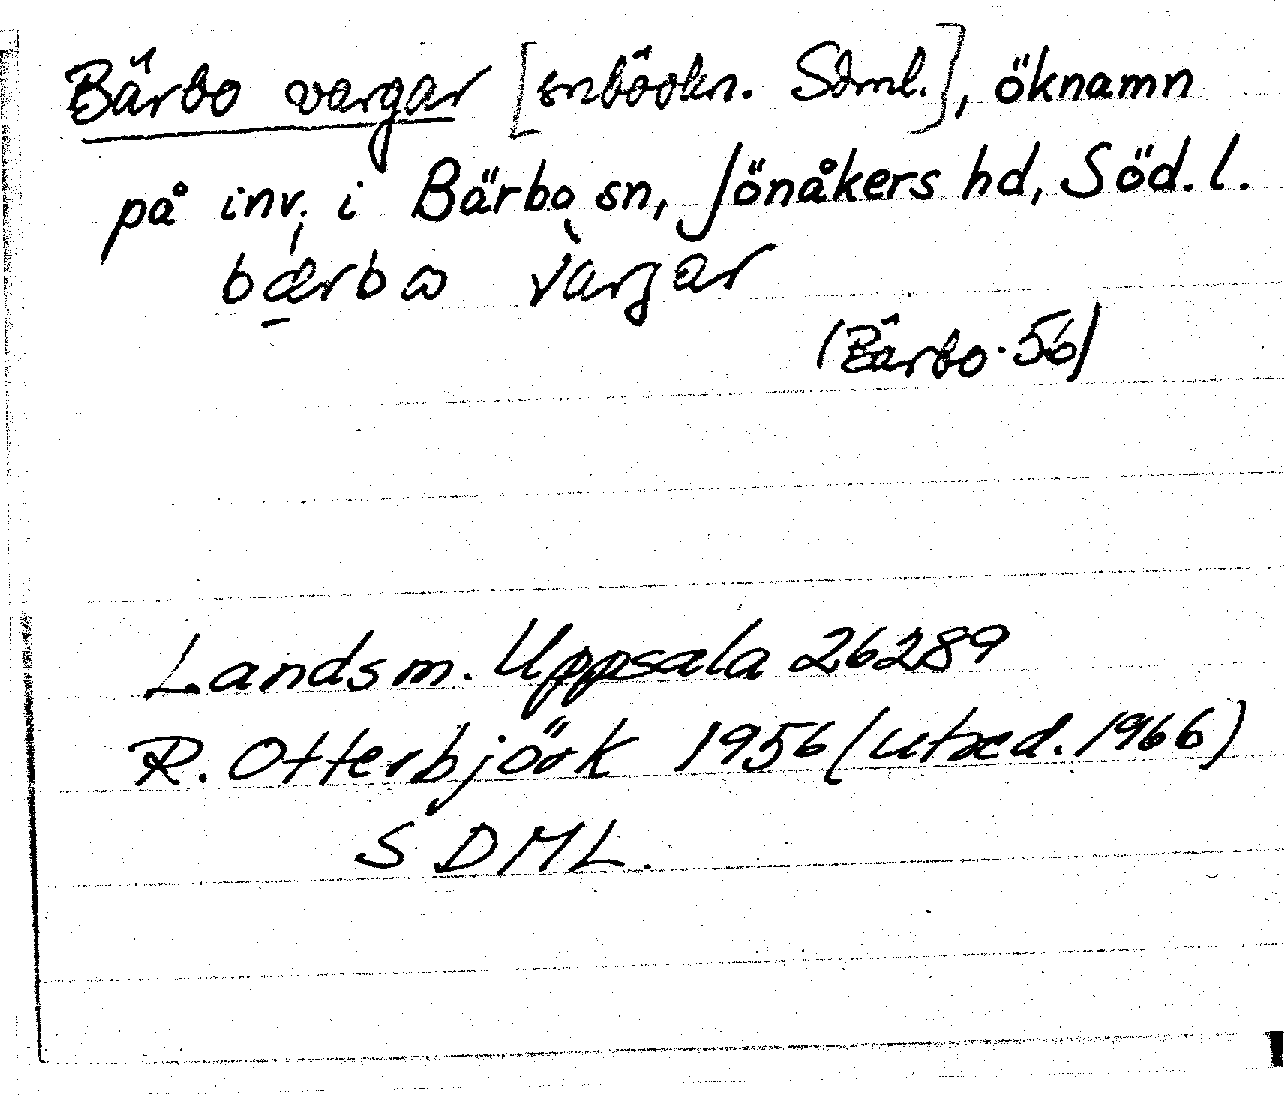 Bärbo vargar [snböokn. Sdml.], öknamn
på inv. i Bärbo sn, Jönåkers hd, Söd.l.
bærbω vargar
(Bärbo. 56)
Landsm. Uppsala 26289
R. Otterbjörk 1956 (utxed. 1966)
SDML.